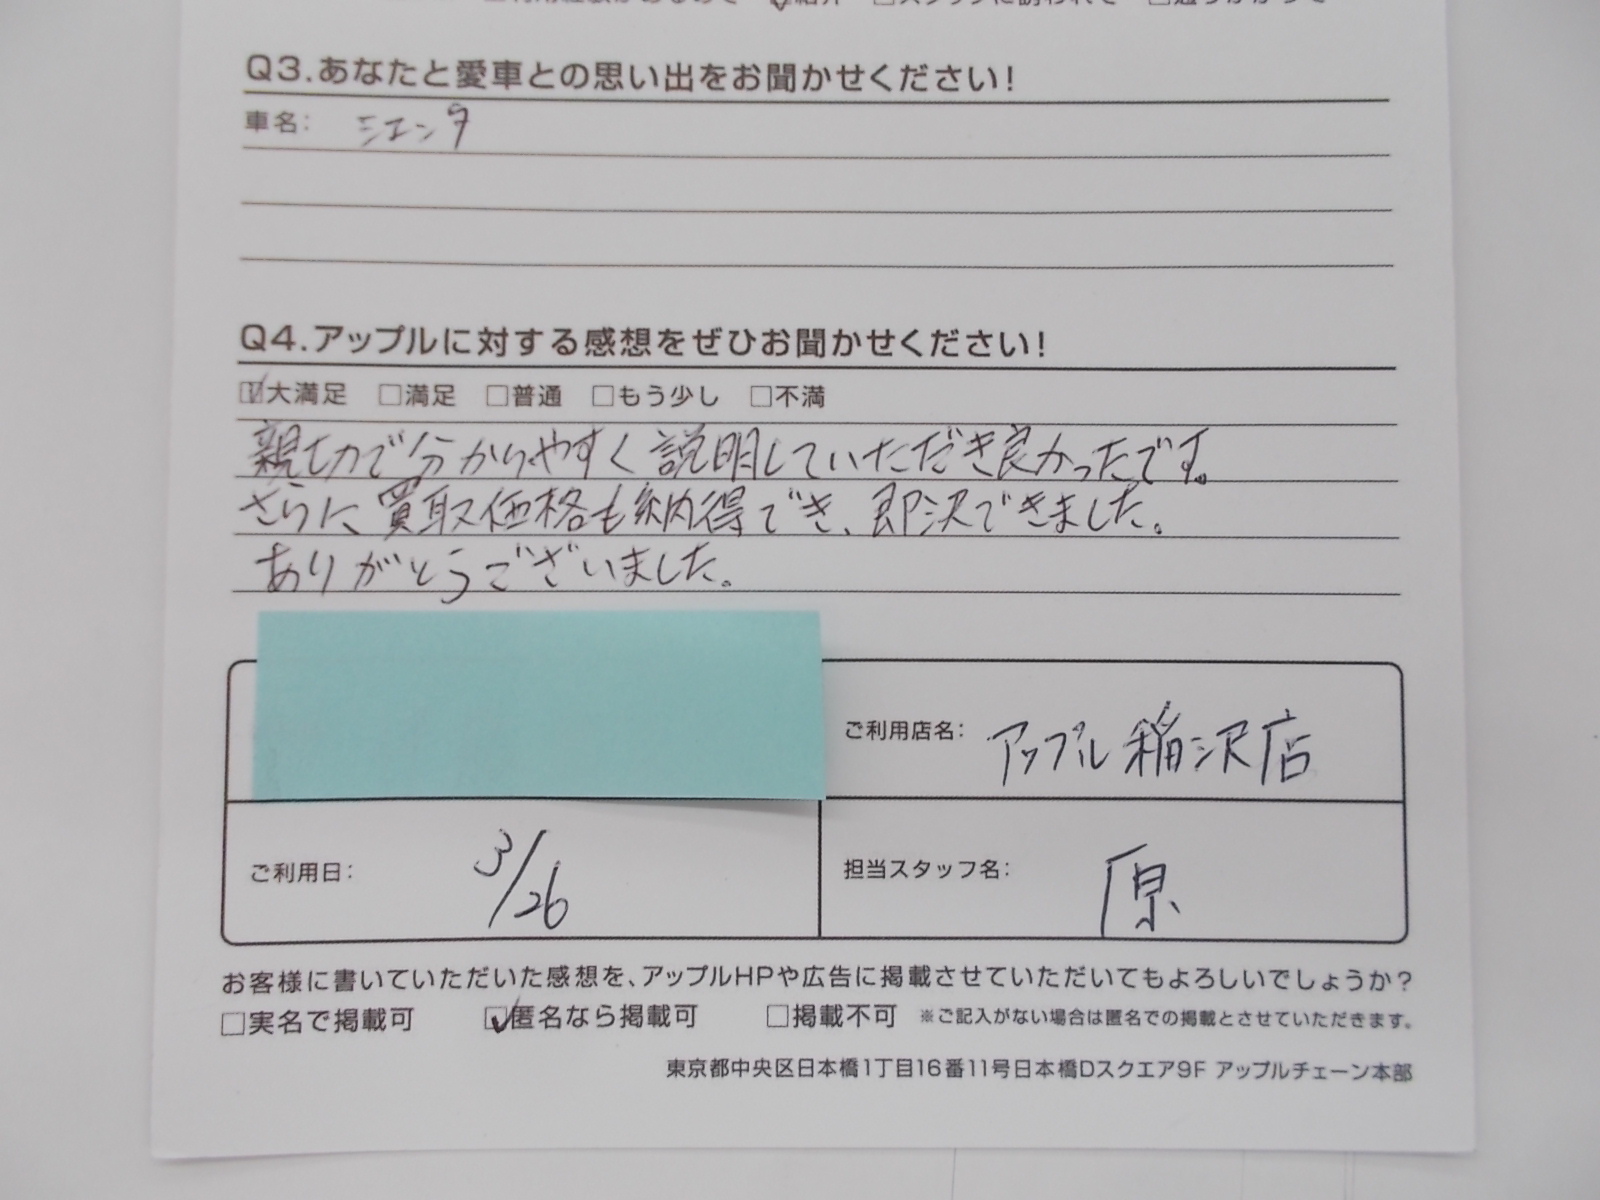 ☑紹介
Q3.あなたと愛車との思い出をお聞かせください!
車名: シエンタ
Q4.アップルに対する感想をぜひお聞かせください!
☑大満足 □満足 □普通 □もう少し □不満
親切で分かりやすく説明していただき良かったです。
さらに、買取価格も納得でき、即決できました。
ありがとうございました。
ご利用店名: アップル稲沢店
ご利用日: 3/26
担当スタッフ名: 原
お客様に書いていただいた感想を、アップルHPや広告に掲載させていただいてもよろしいでしょうか?
□実名で掲載可 ☑匿名なら掲載可 □掲載不可 ※ご記入がない場合は匿名での掲載とさせていただきます。
東京都中央区日本橋1丁目16番11号日本橋Dスクエア9F アップルチェーン本部